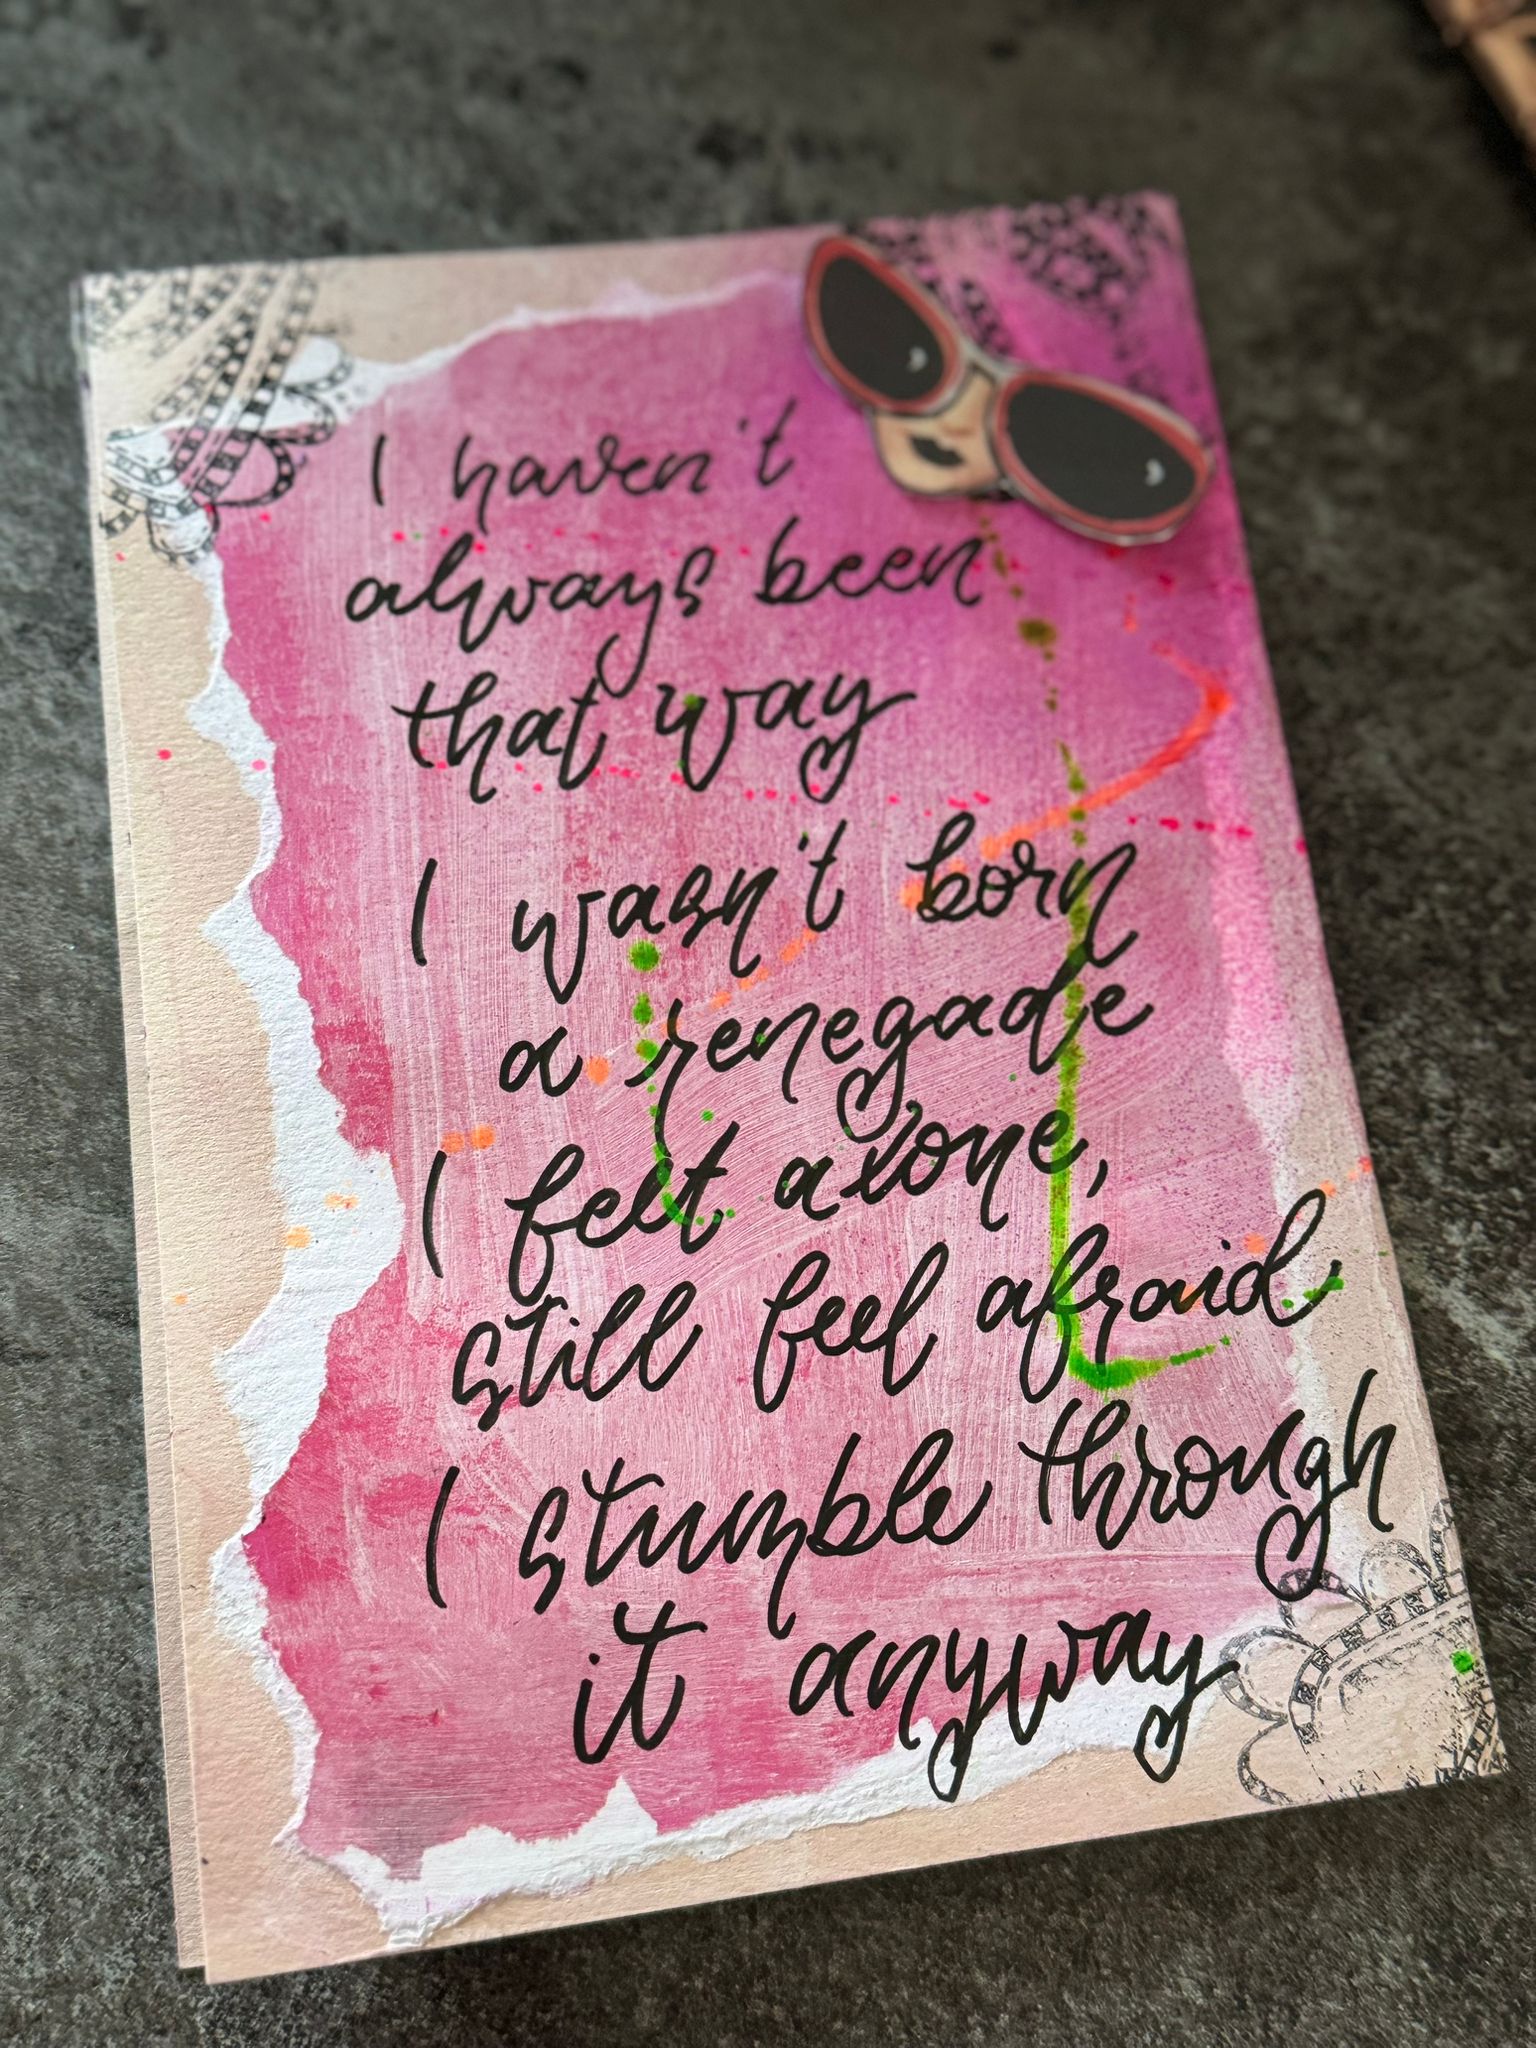 I haven't
always been
that way
I wasn't born
a renegade
I felt alone,
still feel afraid
I stumble through
it anyway